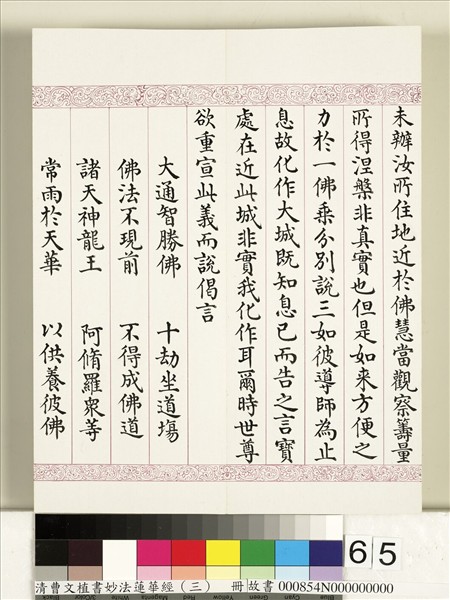 未辦汝所住地近於佛慧當觀察籌量
所得涅槃非真實也但是如来方便之
力於一佛乘分別說三如彼導師為止
息故化作大城既知息已而告之言寶
處在近此城非實我化作耳爾時世尊
欲重宣此義而說偈言
大通智勝佛　十劫坐道場
佛法不現前　不得成佛道
諸天神龍王　阿脩羅眾等
常雨於天華　以供養彼佛
65
清曹文植書妙法蓮華經（三）　冊 故書 000854N000000000